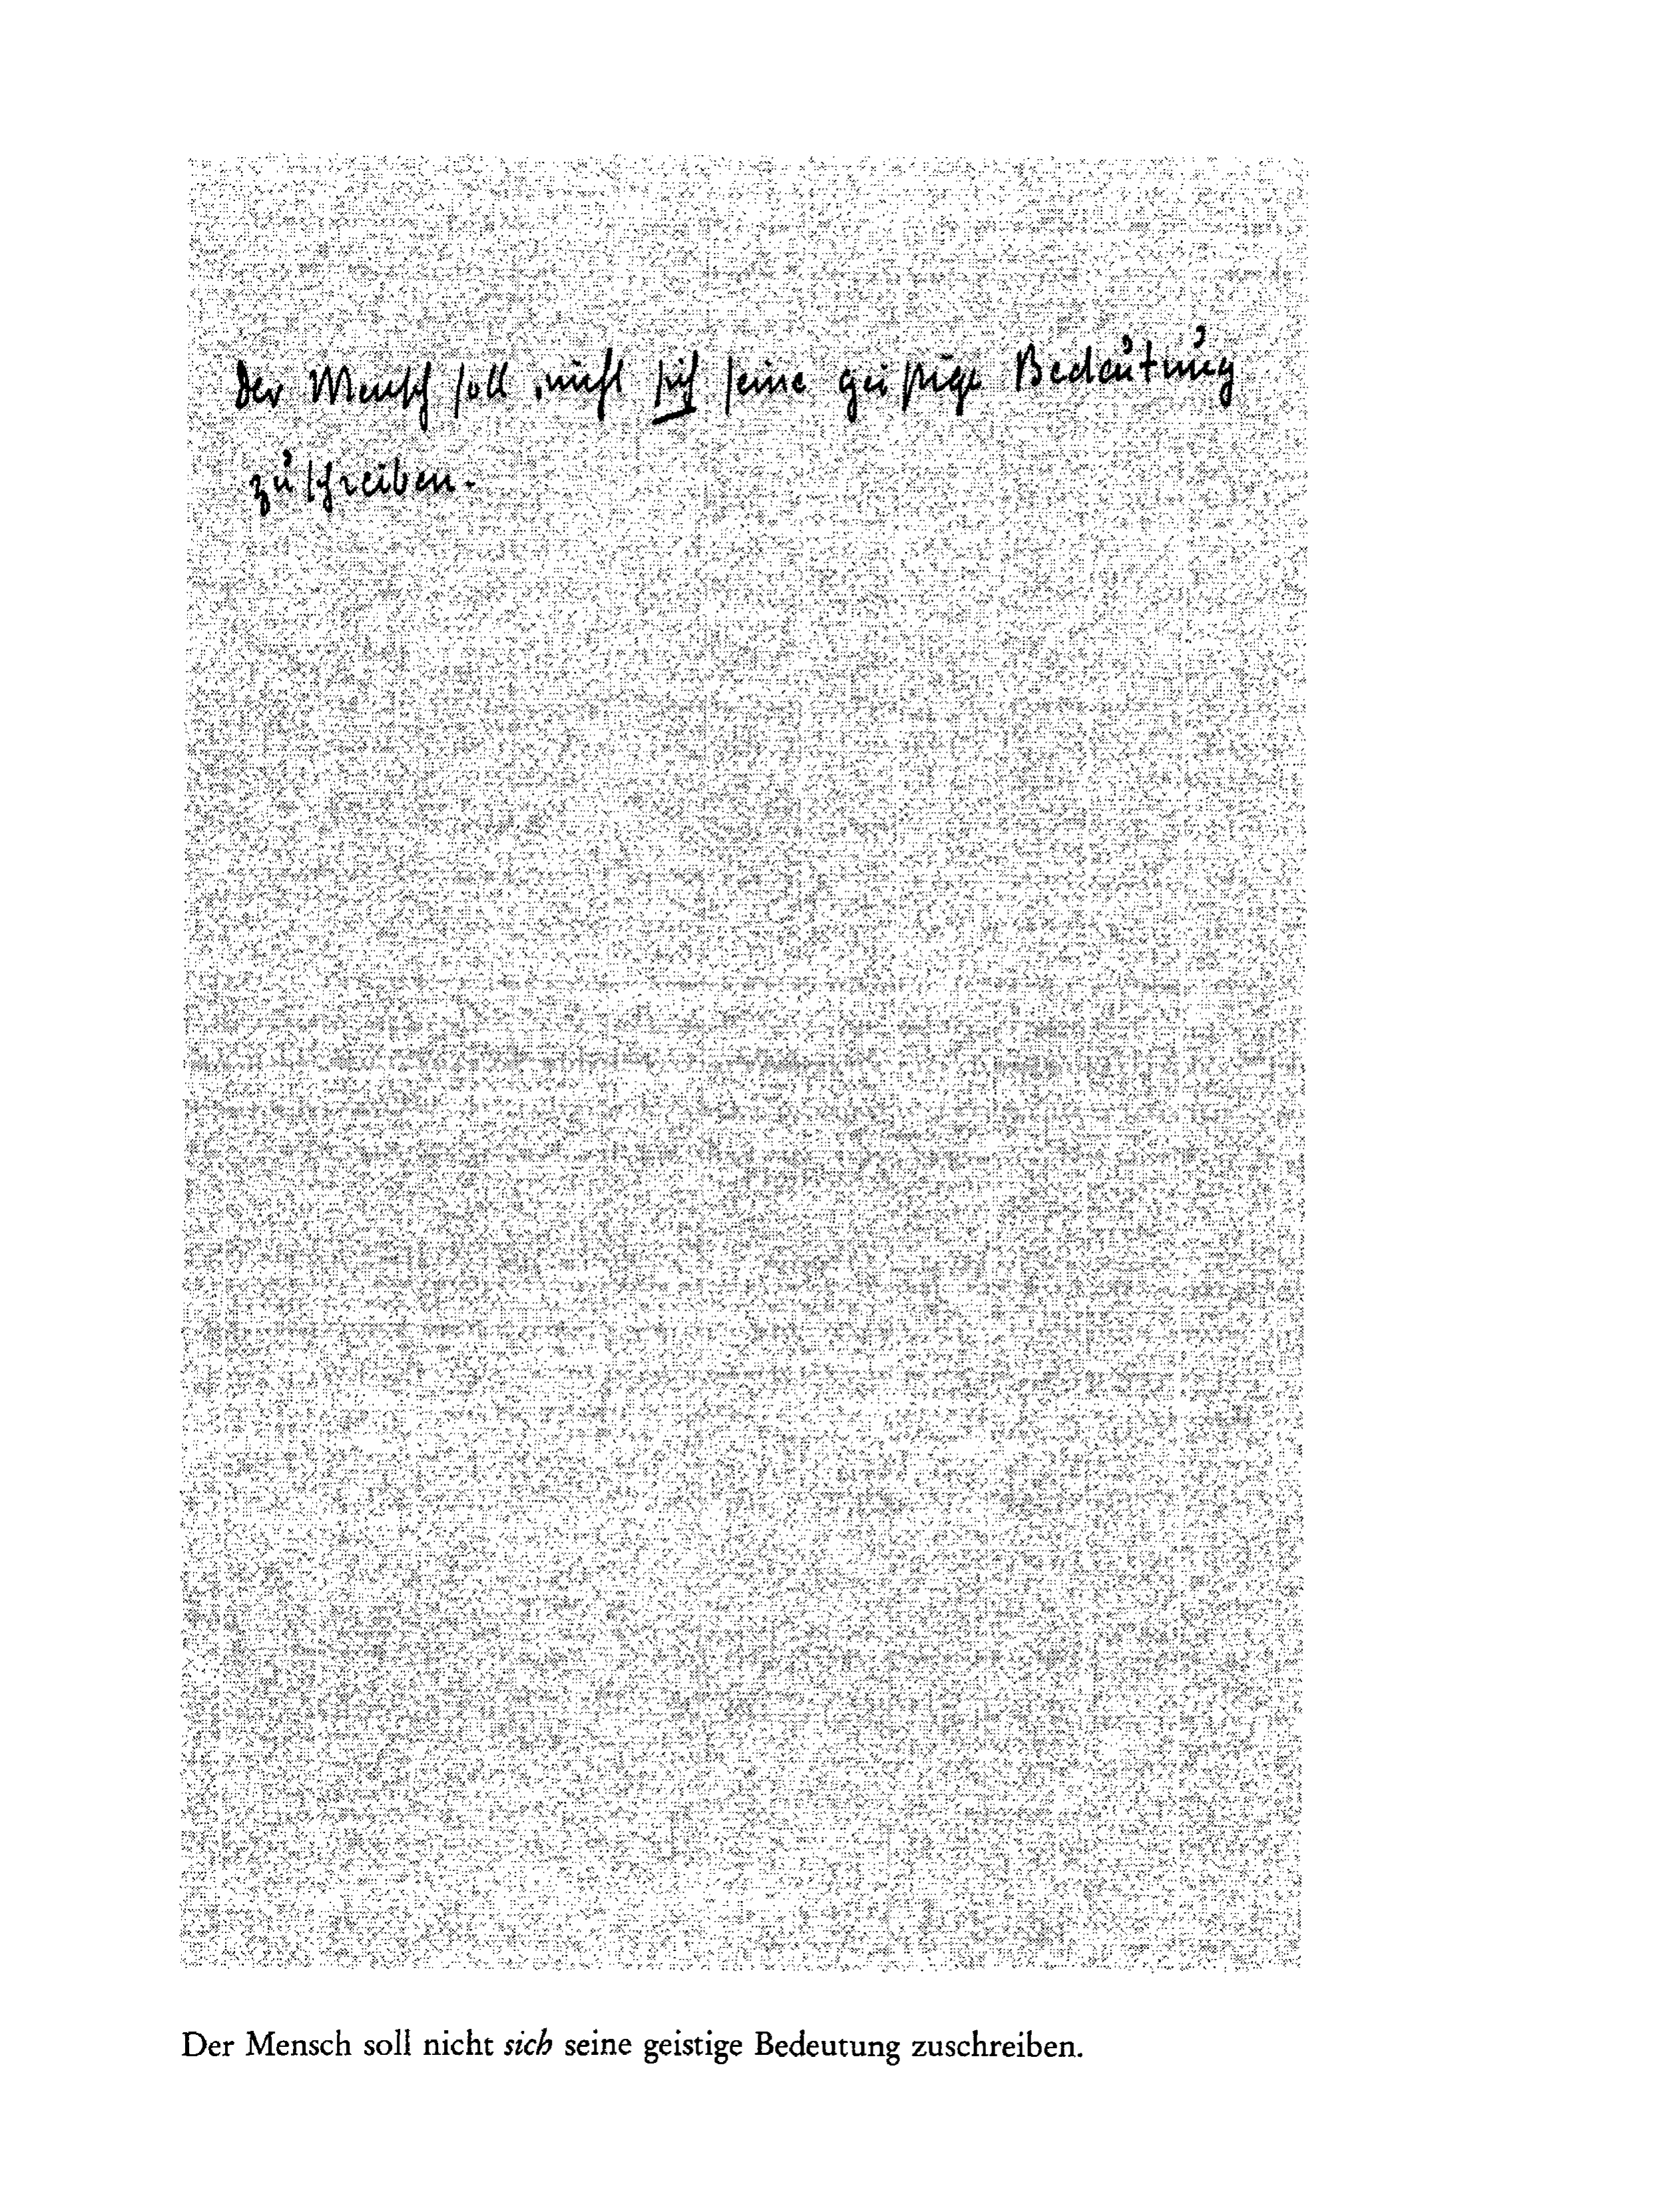 Der Mensch soll nicht sich seine geistige Bedeutung
zuschreiben.
Der Mensch soll nicht sich seine geistige Bedeutung zuschreiben.